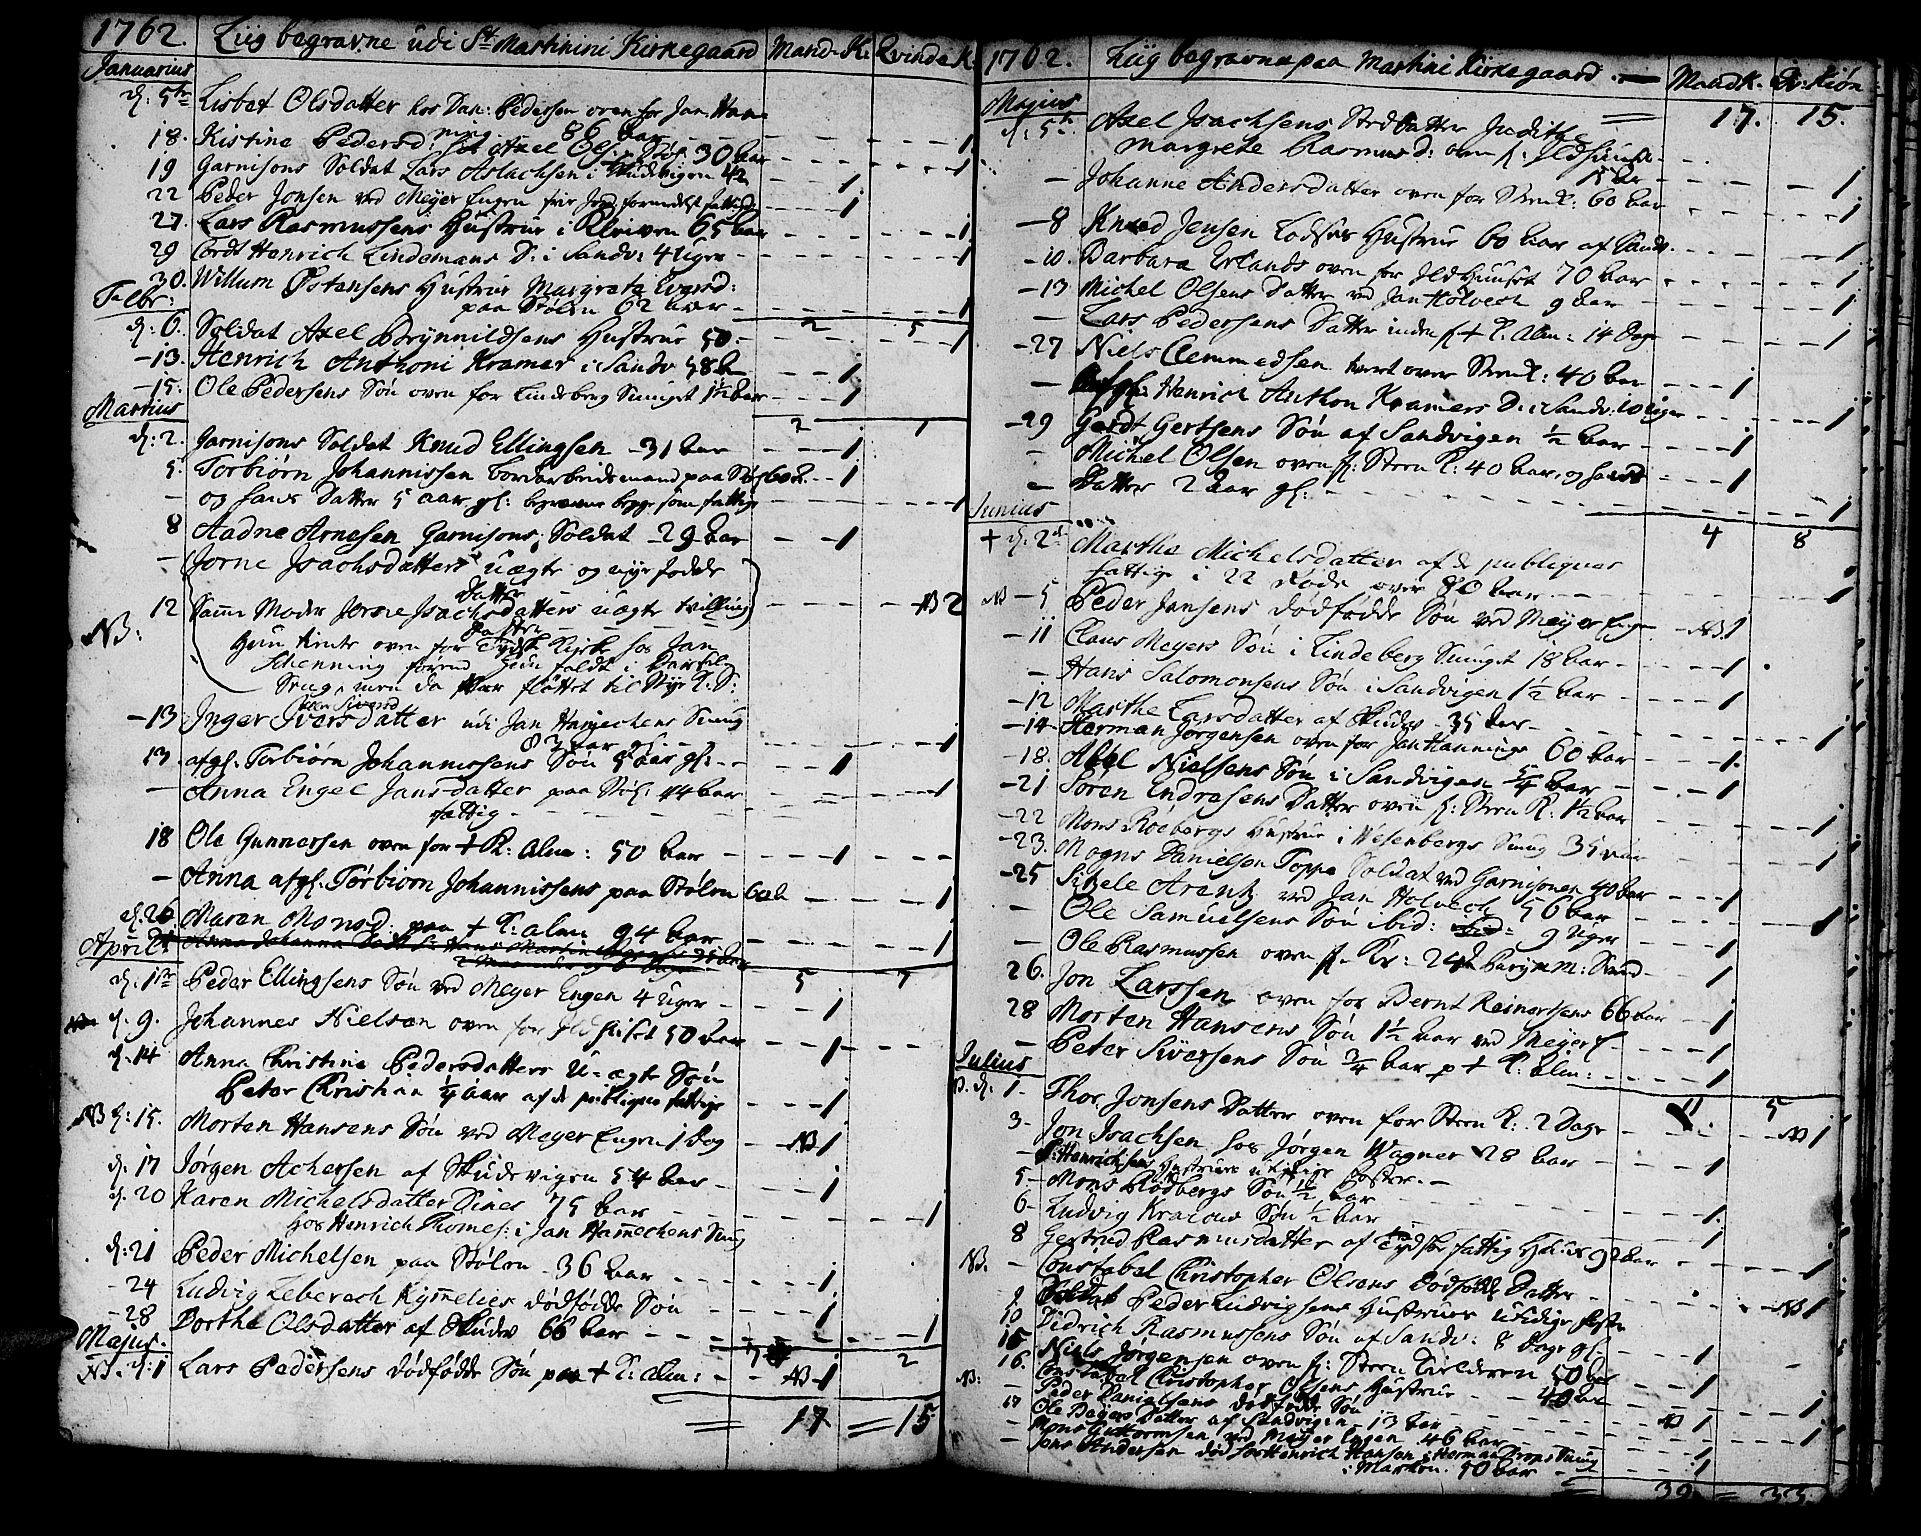 1762. Liig begravne udi St Martinini Kirkegaard Mand-K: Qvinde K.
Januarius
d: 5te Lisbet Olsdatter hos Dan: Pedersen oven for Jan Hane
86 aar 1
18. Kistine Pedersd: hos Axel Ols: Støl: 30 aar 1
19 Garnisons Soldat Lars Aslachsen i Skudevigen 42 1
22 Peder Jonsen ved Meyer Engen frie Jord formedelst fattigd: 1
27. Lars Rasmussens Hustrue i Kleiven 65 aar 1
29 Cordt Henrich Lindemans D: i Sandv: 4 Uger 1
30. Willum Østensens Hustrue Margrete Iversd:
paa Stølen 62 aar 1
Febr: 2 5
d: 6. Soldat Axel Brynnildsens Hustrue 50. 1
-13. Henrich Anthoni Kramer i Sandv 58 a 1
-15. Ole Pedersens Søn oven for Lindeberg Smuget 1½ aar 1
Martius 2 1
d: 2. Garnisons Soldat Knud Ellingsen 31 aar 1
5. Torbiørn Johannissen Bordarbeidsmand paa Støl: 60 a. 1
- og hans Datter 5 aar gl: begravne begge som fattige 1
8 Aadne Arnesen Garnisons Soldat 29 aar 1
- Jorne Isachsdatters uægte og nye fødde
Datter
12 Samme Moder Jorne Isachsdatters uægte tvilling NB 2
NB: Hun tiente oven for Tydsk Kirke hos Jan
Schenning forend Hun faldt i Barsel
Seng, men da var fløttet til Nye K. S:
-13 Inger Iversdatter udi Jan Hannechens Smug
83 aar gl. 1
13. afgl. Torbiørn Johannissens Søn 5 aar gl: 1
- Anna Engel Jansdatter paa Støl: 44 aar 1
fattig
18 Ole Gunnersen oven for + K: alm: 50 aar 1
- Anna afgl. Torbiørn Johannissens paa Stølen 60 a 1
d: 26 Maren Monsd: paa + K: alm 94 aar 1
April 5 7
d: 1te Peder Ellingsens Søn ved Meyer Engen 4 Uger 1
d: 9. Johannes Nielsen oven for Ildhuset 50 aar 1
d: 14 Anna Christine Pedersdatters U-ægte Søn
Peter Christian ¼ aar af de publique fattige 1
NB d: 15. Morten Hansens Søn ved Meyer Engen 1 Dag NB 1
d: 17 Jørgen Achersen af Skudevigen 54 aar 1
d: 20 Karen Michelsdatter Dines 75 aar 1
hos Henrich Thomes: i Jan Hannechens Smug
d: 21 Peder Michelsen paa Stølen 36 aar 1
-24 Ludvig Leberech Kymmelies dødfødde Søn 1
-28 Dorthe Olsdatter af Skudev 66 aar 1
Majus. 7 2
NB. d: 1 Lars Pedersens dødfødde Søn paa + K: alm: NB 1
17 15
1762. Liig begravne paa Martini Kirkegaard. Mand K. Qv: Kiøn
Majus 17. 15.
d: 5te Axel Isachsens Sted Datter Judithe
Margrete Rasmusd: oven f: Ildhuuset
15 aar 1
- Johanne Andersdatter oven for Steen K: 60 aar 1
-8 Knud Jensen Lodses Hustrue 60 aar af Sandv. 1
-10. Barbara Erlands oven for Ild Huuset 70 aar 1
-13 Michel Olsens Datter ved Jan Holvech 9 aar 1
- Lars Pedersens Datter inden f + K. Alm: 14 Dage 1
-27 Niels Clemmedsen tvert over Steen K: 40 aar 1
- afgl: Henrich Anthon Kramers D: i Sandv: 10 Uger 1
-29 Gerdt Gertsens Søn af Sandvigen ½ aar 1
- Michel Olsen oven f: Steen K: 40 aar, og hands 1
- Datter 2 aar gl: 1
Junius 4 8
+ d: 2den Marthe Michelsdatter af de publiques
fattige i 22 Rode over 80 aar 1
NB -5 Peder Jansens dødfødde Søn ved Meyer Enge NB 1
-11 Claus Meyers Søn i Lindeberg Smuget 18 aar 1
- Hans Salomonsens Søn i Sandvigen 1½ aar 1
-12 Marthe Larsdatter af Skudev 35 aar 1
-14 Herman Jørgensen oven for Jan Hannings 60 aar 1
-18. Abel Nielsens Søn i Sandvigen 5/4 aar 1
-21 Søren Endresens Datter oven f: Steen K: 1½ aar 1
-22 Mons Rødbergs Hustrue i Wesenbergs Smug 35 aar 1
-23. Mogns Danielsen Toppe Soldat ved Garnisonen 40 aar 1
-25 Sidsele Arentz ved Jan Holvech 56 aar 1
- Ole Samuelsens Søn ibid: 9 Uger 1
- Ole Rasmussen oven f. Kr: 24 1
26. Jon Larssen oven for Bernt Reinertsens 66 aar 1
28 Morten Hansens Søn 1½ aar ved Meyer E 1
- Peter Siversens Søn ¾ aar p + K: Alm: 1
Julius 11 5
d: 1. Thor Jonsens Datter oven for Steen K: 2 Dage NB 1
3- Jon Isachsen hos Jørgen Wagner 28 aar 1
- P: Henrichsens Hustrues utidige foster.
5- Mons Rødbergs Søn 1½ aar 1
6- Ludvig Kracous Søn ½ aar 1
8 Gertrud Rasmusdatter af Tydske fattig Huus 92 aar 1
NB. - Constabel Christopher Olsens dødfødde Datter NB 1
9 Soldat Peder Ludvigsens Hustrues utidige foster
10 Didrich Rasmussens Søn af Sandv: 8 Dage gl: 1
15 Niels Jørgensen oven f: Steen Kielderen 50 aar 1
16. Constabel Christopher Olsens Hustrue 40 aar 1
NB: - Peder Danielsens dødfødde Søn NB 1
17 Ole Dages Datter af Sandvigen 13 aar 1
- Mons Guttormsen ved Meyer Engen 46 aar 1
- Jons Andersen død hos Henrich Hansen i Herman Brons Smug
i Marken. 50 aar 1
39 33.